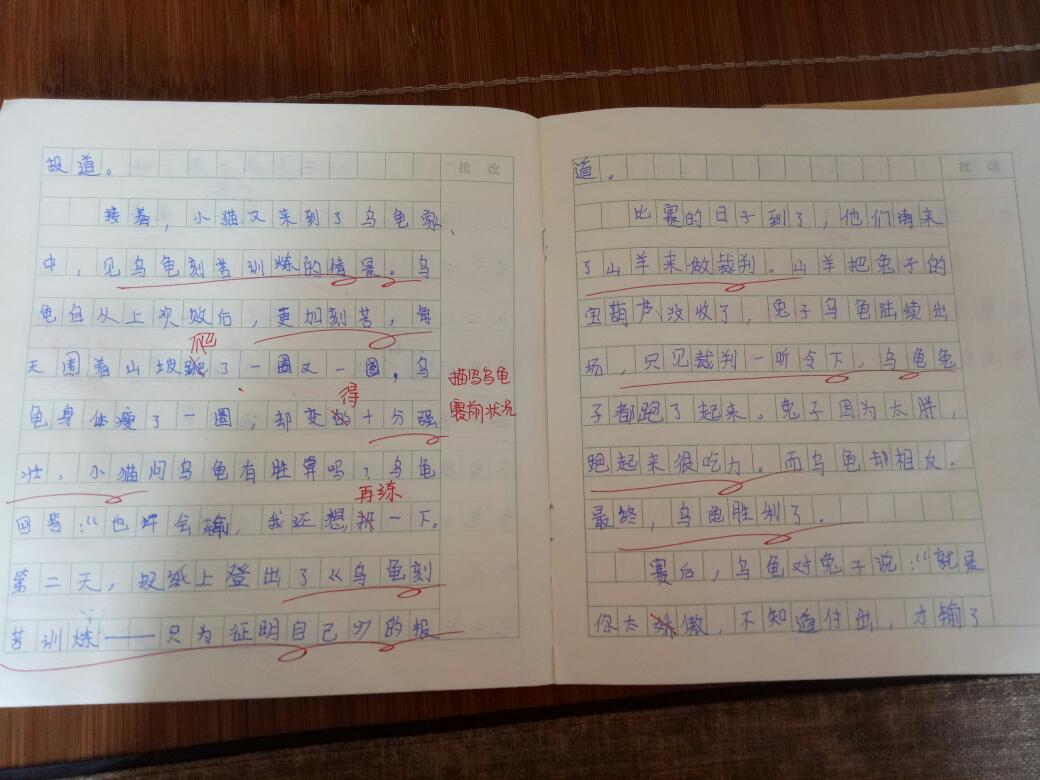 批 改
报道。
接着，小猫又来到了乌龟家
中，见乌龟刻苦训炼的情景。乌
龟自从上次败后，更加刻苦，每
爬
天围着山坡跑了一圈又一圈，乌
得
龟身体瘦了一圈，却变的十分强
描写乌龟
赛前状况
壮，小猫问乌龟有胜算吗？乌龟
再练
回答：“也许会输，我还想一下。
第二天，报纸上登出了《乌龟刻
苦训炼——只为证明自己》的报
批 改
道。
比赛的日子到了，他们请来
了山羊来做裁判。山羊把兔子的
宝葫芦没收了，兔子乌龟陆续出
场，只见裁判一听令下，乌龟兔
子都跑了起来。兔子因为太胖，
跑起来很吃力。而乌龟却相反.
最终，乌龟胜利了.
赛后，乌龟对兔子说：“就是
你太傲，不知道付出，才输了